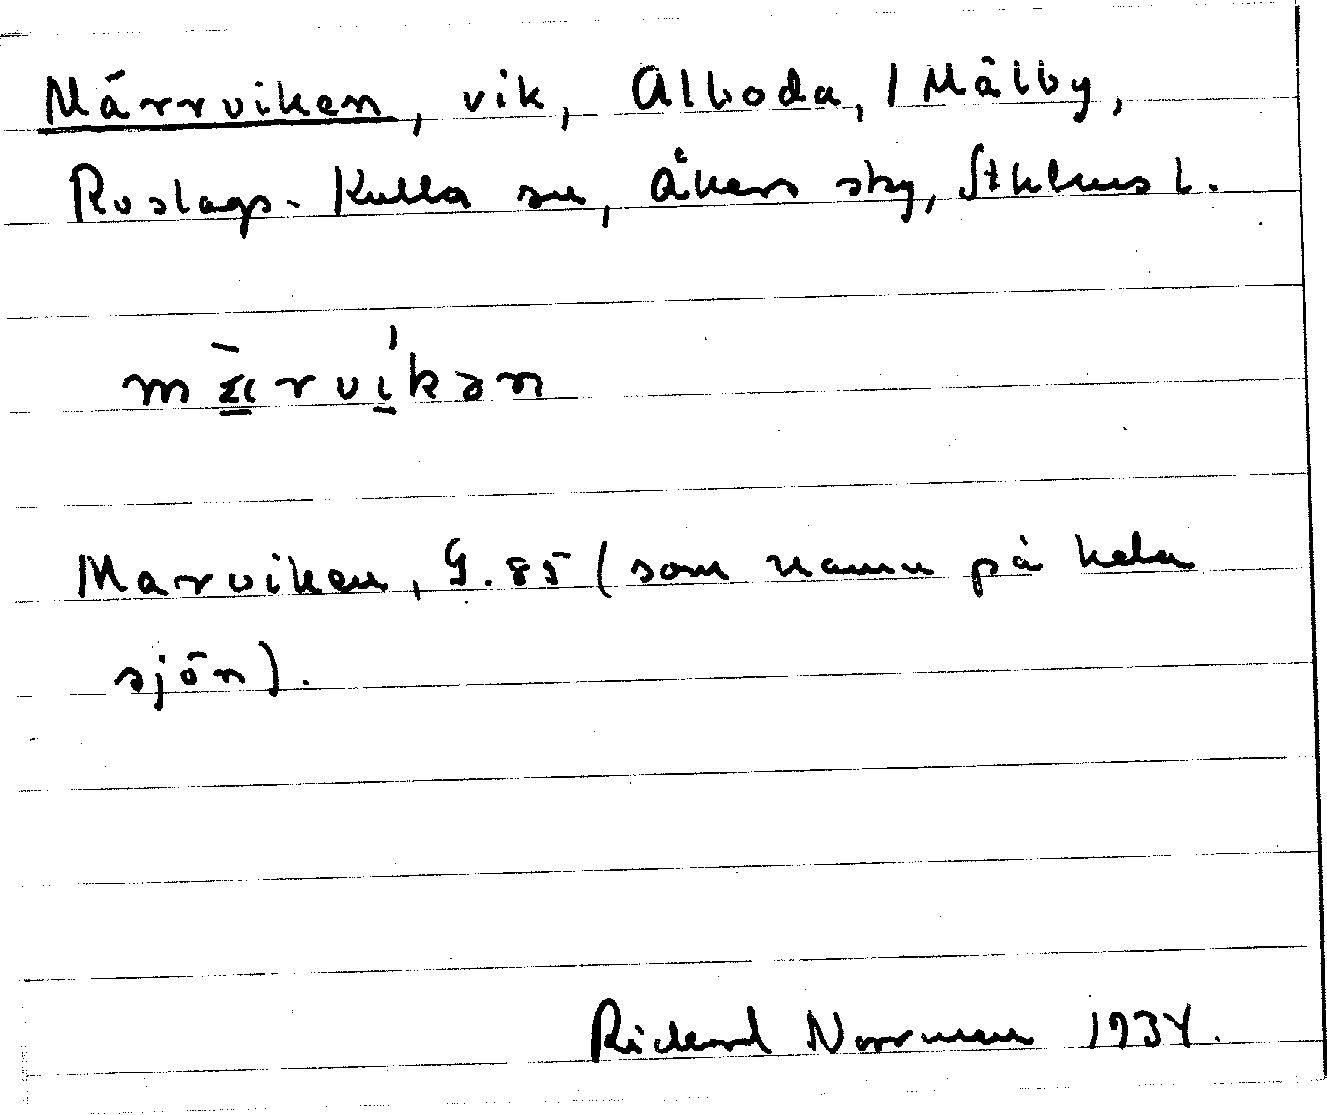 Märrviken, vik, Alboda, / Mälby,
Roslags-Kulla sn, Åkers sky, Sthlms l.
Marviken, G. 85 (som namn på hela
sjön).
Rickard Norrman 1934.